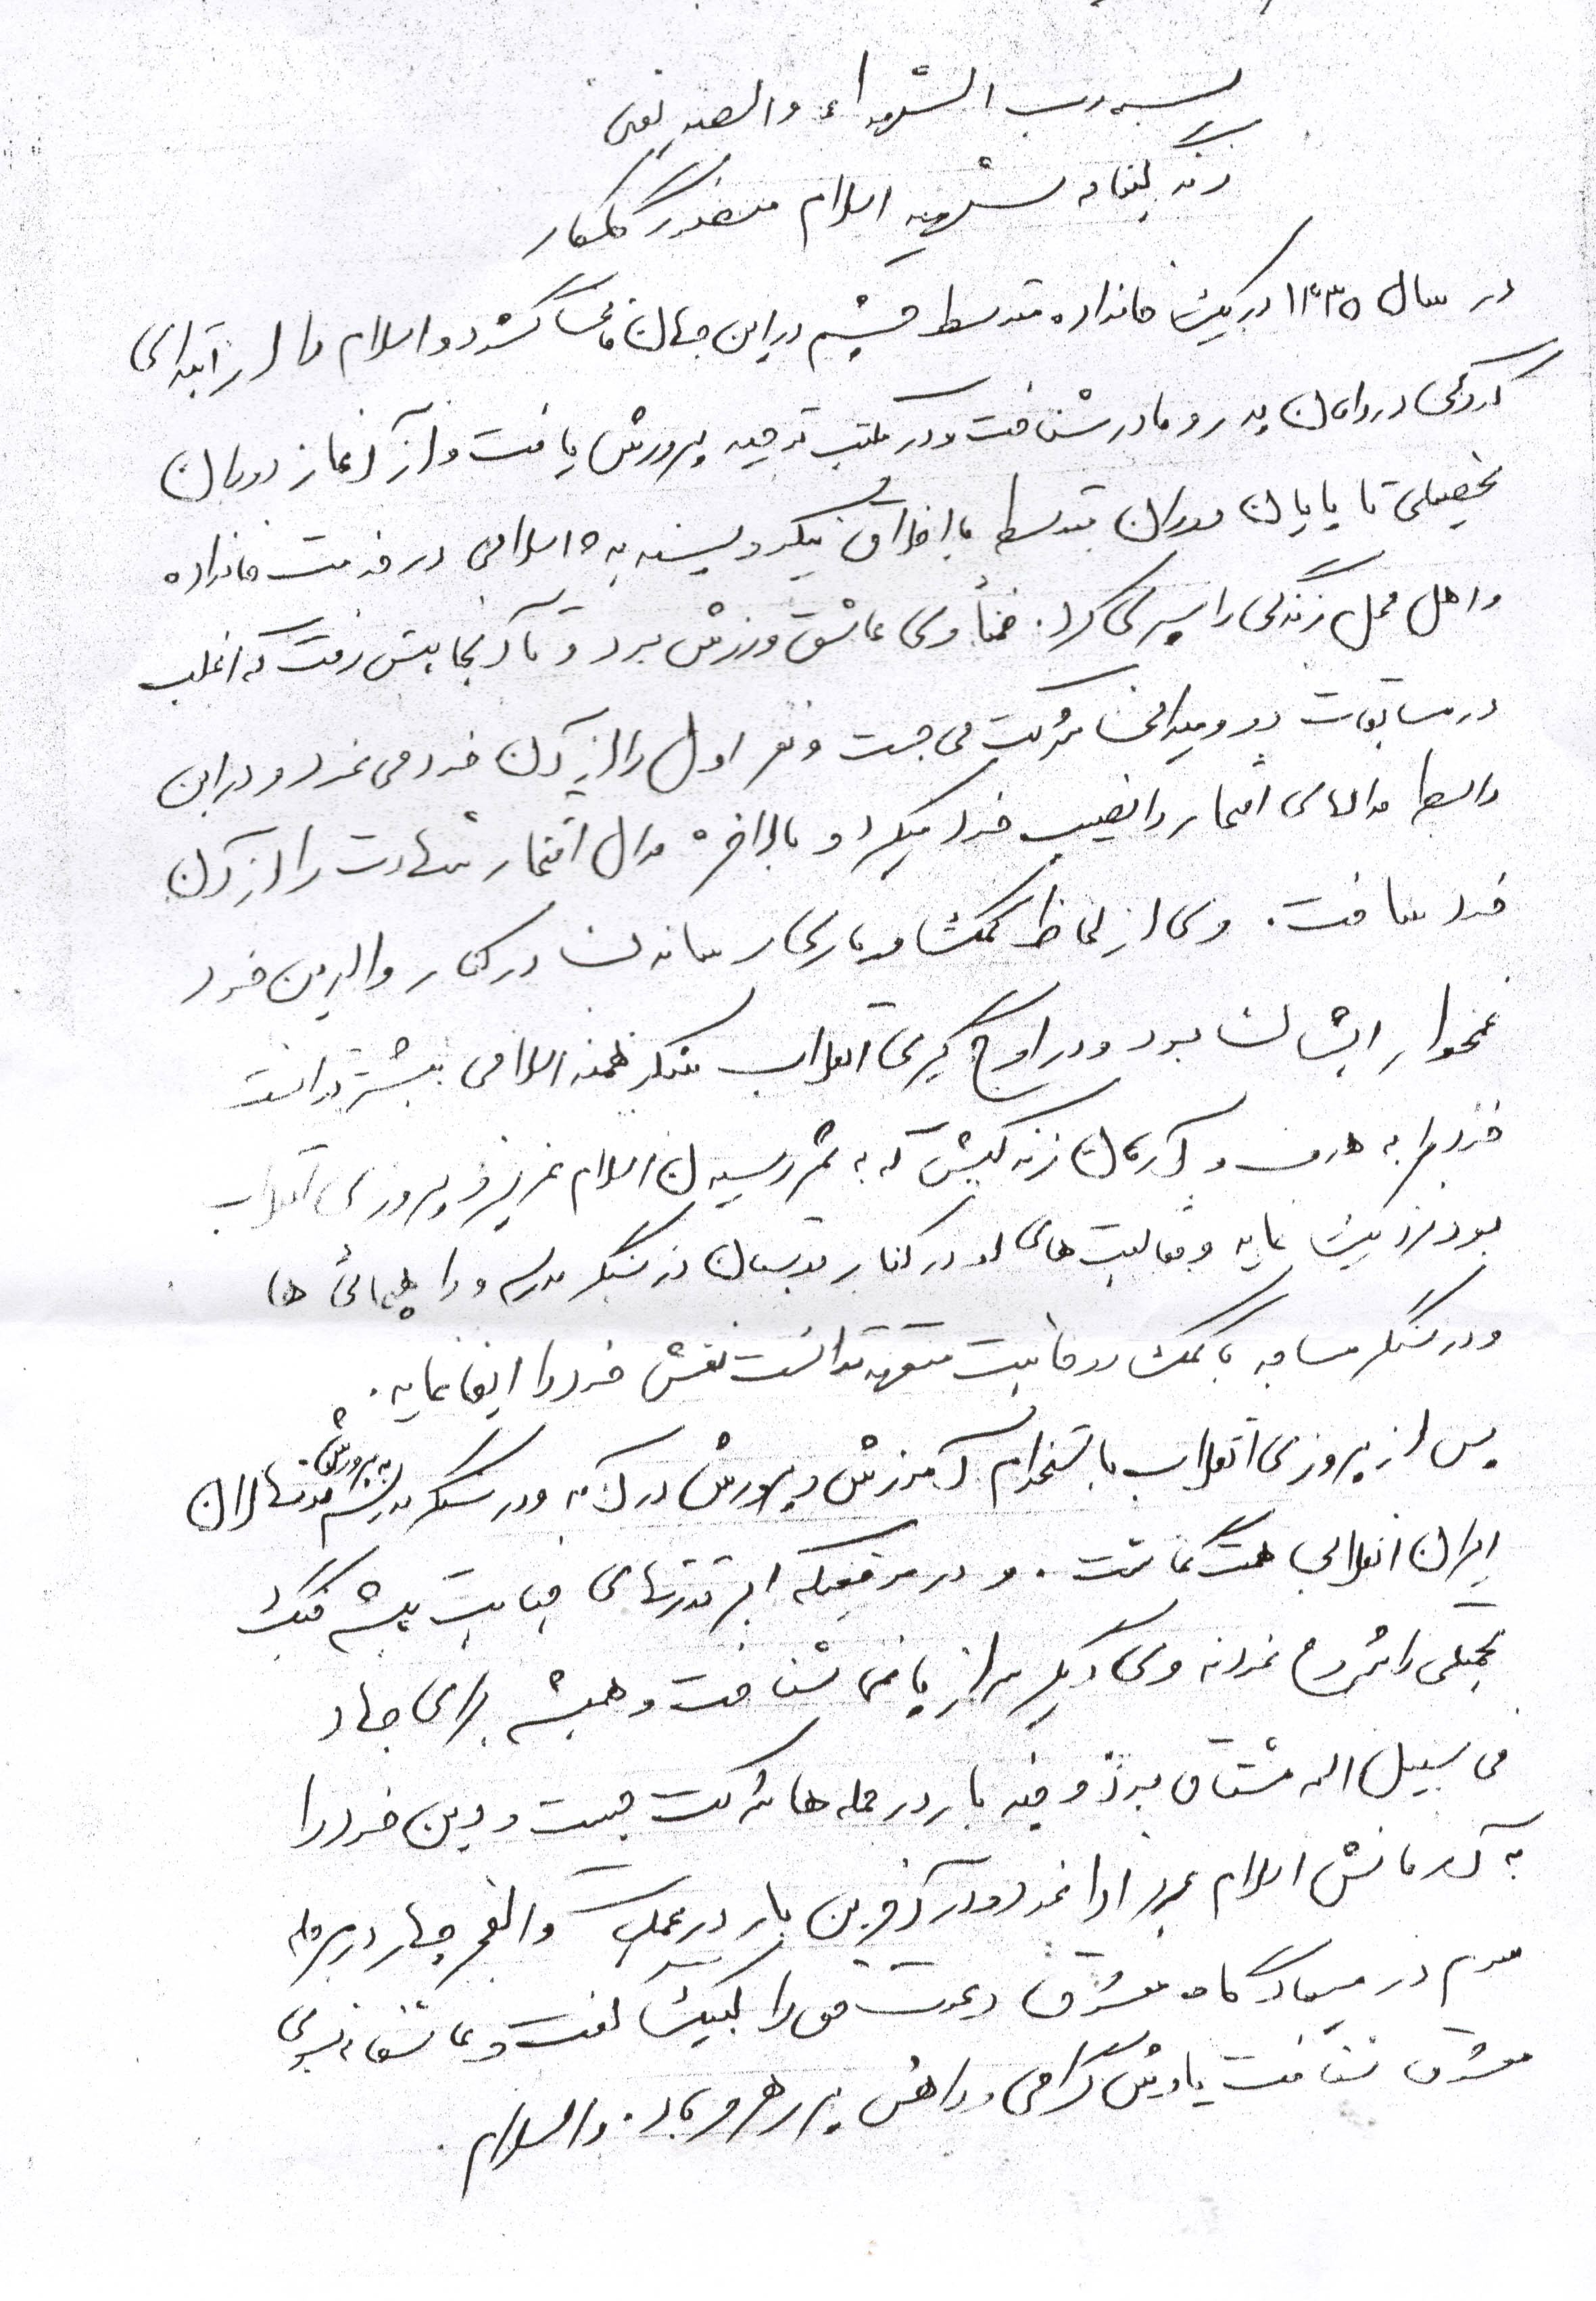 بسم رب الشهداء والصدیقین
زندگینامه شهید اسلام منصور گلکار
در سال ۱۳۳۵ در یک خانواده متوسط چشم در این جهان گشود و اسلام را از ابتدای
کودکی در دامان پدر و مادر شناخت و در مکتب توحید پرورش یافت و از آغاز دوران
تحصیلی تا پایان دوران متوسطه با اخلاق نیکو و پسندیده اسلامی در خدمت خانواده
و اهل محل زندگی را سپری کرد. ضمناً وی عاشق ورزش بود و تا آنجا پیش رفت که اغلب
در مسابقات دو و میدانی شرکت می جست و نفر اول را از آن خود می نمود و در این
رابطه مدالهای افتخار را نصیب خود میکرد و بالاخره مدال افتخار شهادت را از آن
خود ساخت. وی از لحاظ کمک و یاری رساندن در کنار والدین خود
غمخوار ایشان بود و در اوج گیری انقلاب شکوهمند اسلامی بیشتر توانست
خود را به هدف و آرمان زندگیش که به ثمر رسیدن اسلام عزیز و پیروزی انقلاب
بود نزدیک نماید و فعالیت های او در کنار دوستان در سنگر مدرسه و راهپیمائی ها
و در سنگر مساجد با کمک روحانیت متعهد توانست نقش خود را ایفا نماید.
پس از پیروزی انقلاب با استخدام آموزش و پرورش درآمد و در سنگر مدرسه به پرورش نونهالان
ایران انقلابی همت گماشت. و در موقعیکه ابرقدرتهای جنایت پیشه جنگ
تحمیلی را شروع نمودند وی دیگر سر از پا نمی شناخت و همیشه برای جهاد
فی سبیل الله مشتاق بود و چند بار در حمله ها شرکت جست و دین خود را
به آرمانش اسلام عزیز ادا نمود و در آخرین بار در عملیات والفجر چهار در مرحله
سوم در میعادگاه معشوق دعوت حق را لبیک گفت و عاشقانه بسوی
معشوق شتافت یادش گرامی و راهش پر رهرو باد. والسلام.